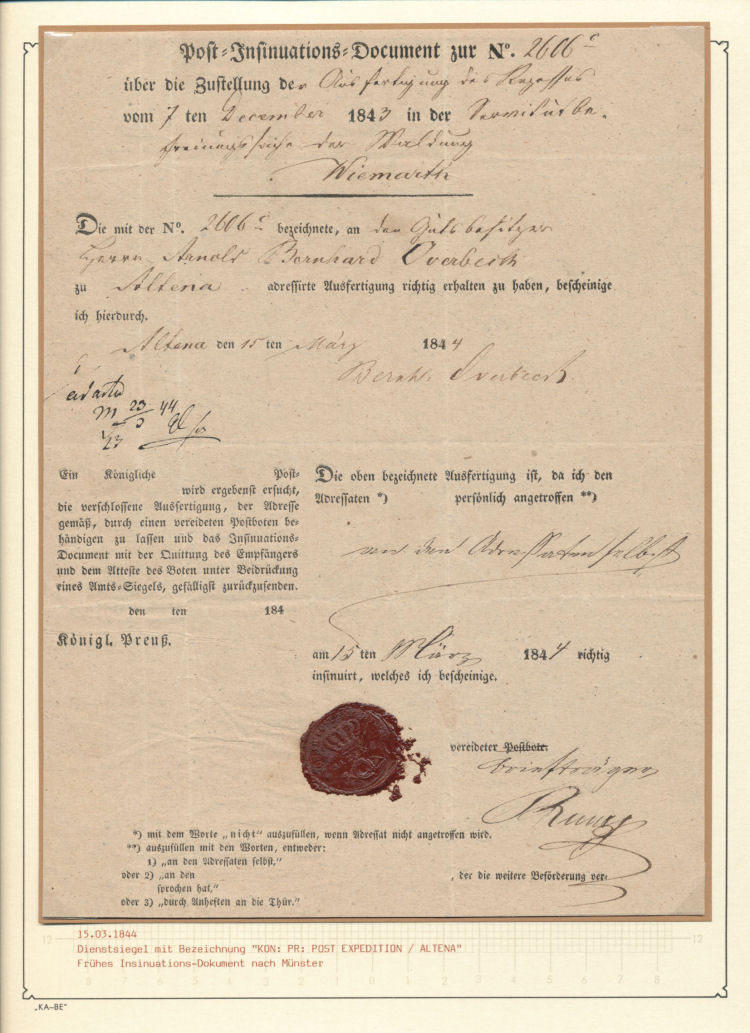 Post-Insinuations-Document zur No. 2606 c
über die Zustellung der Ausfertigung des Rezesses
vom 7 ten December 1843 in der Servitutbe-
freiungssache der Waldung
Wiemarth
Die mit der No. 2606 c bezeichnete, an den Gutsbesitzer
Herrn Arnold Bernhard Overbeck
zu Altena adressirte Ausfertigung richtig erhalten zu haben, bescheinige
ich hierdurch.
Altena den 15 ten März 1844
Bernh. Overbeck
ad acta
M 23/3 44
Ein Königliche Post-
wird ergebenst ersucht,
die verschlossene Ausfertigung, der Adresse
gemäß, durch einen vereideten Postboten be-
händigen zu lassen und das Insinuations-
Document mit der Quittung des Empfängers
und dem Atteste des Boten unter Beidrückung
eines Amts-Siegels, gefälligst zurückzusenden.
den ten 184
Königl. Preuß.
Die oben bezeichnete Ausfertigung ist, da ich den
Adressaten *) persönlich angetroffen **)
an den Adressaten selbst
am 15 ten März 1844 richtig
insinuirt, welches ich bescheinige.
vereideter Postbote.
Briefträger
*) mit dem Worte „nicht“ auszufüllen, wenn Adressat nicht angetroffen wird.
**) auszufüllen mit den Worten, entweder:
1) „an den Adressaten selbst,“
oder 2) „an den , der die weitere Beförderung ver-
sprochen hat,“
oder 3) „durch Anheften an die Thür.“
15.03.1844
Dienstsiegel mit Bezeichnung "KÖN: PR: POST EXPEDITION / ALTENA"
Frühes Insinuations-Dokument nach Münster
12 12
8 7 6 5 4 3 2 1 0 1 2 3 4 5 6 7 8
„KA-BE“